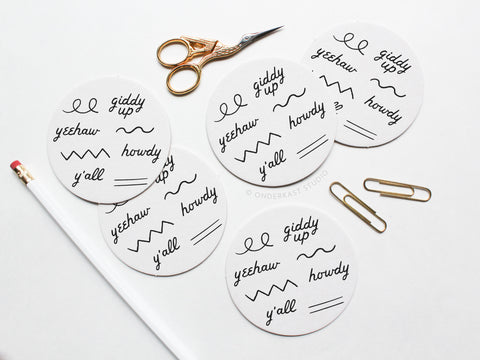 giddy
up
yeehaw
howdy
y'all
giddy
up
yeehaw
howdy
y'all
giddy
up
yeehaw
howdy
giddy
up
yeehaw
howdy
y'all
© ONDERKAST STUDIO
giddy
up
yeehaw
howdy
y'all